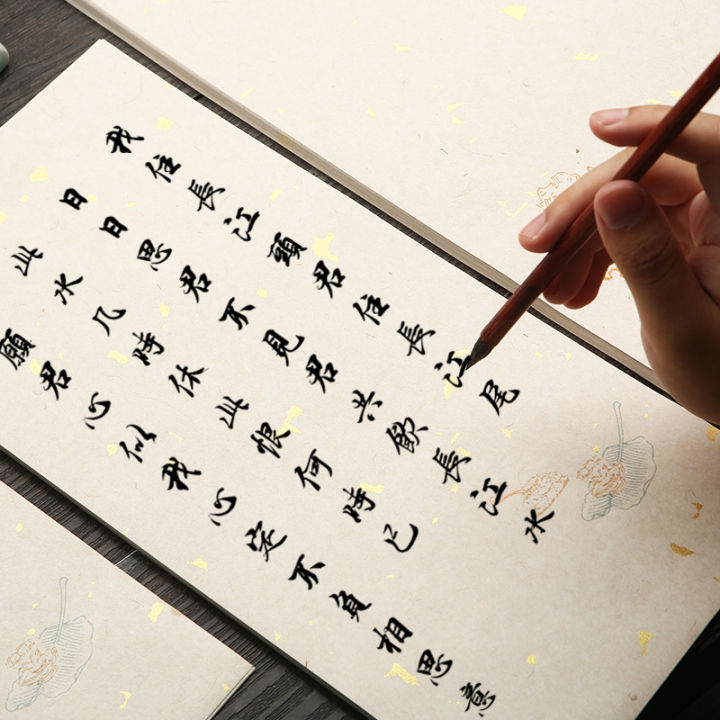 我住長江頭君住長江尾
日日思君不見君共飲長江水
此水几時休此恨何時已
願君心似我心定不負相思意